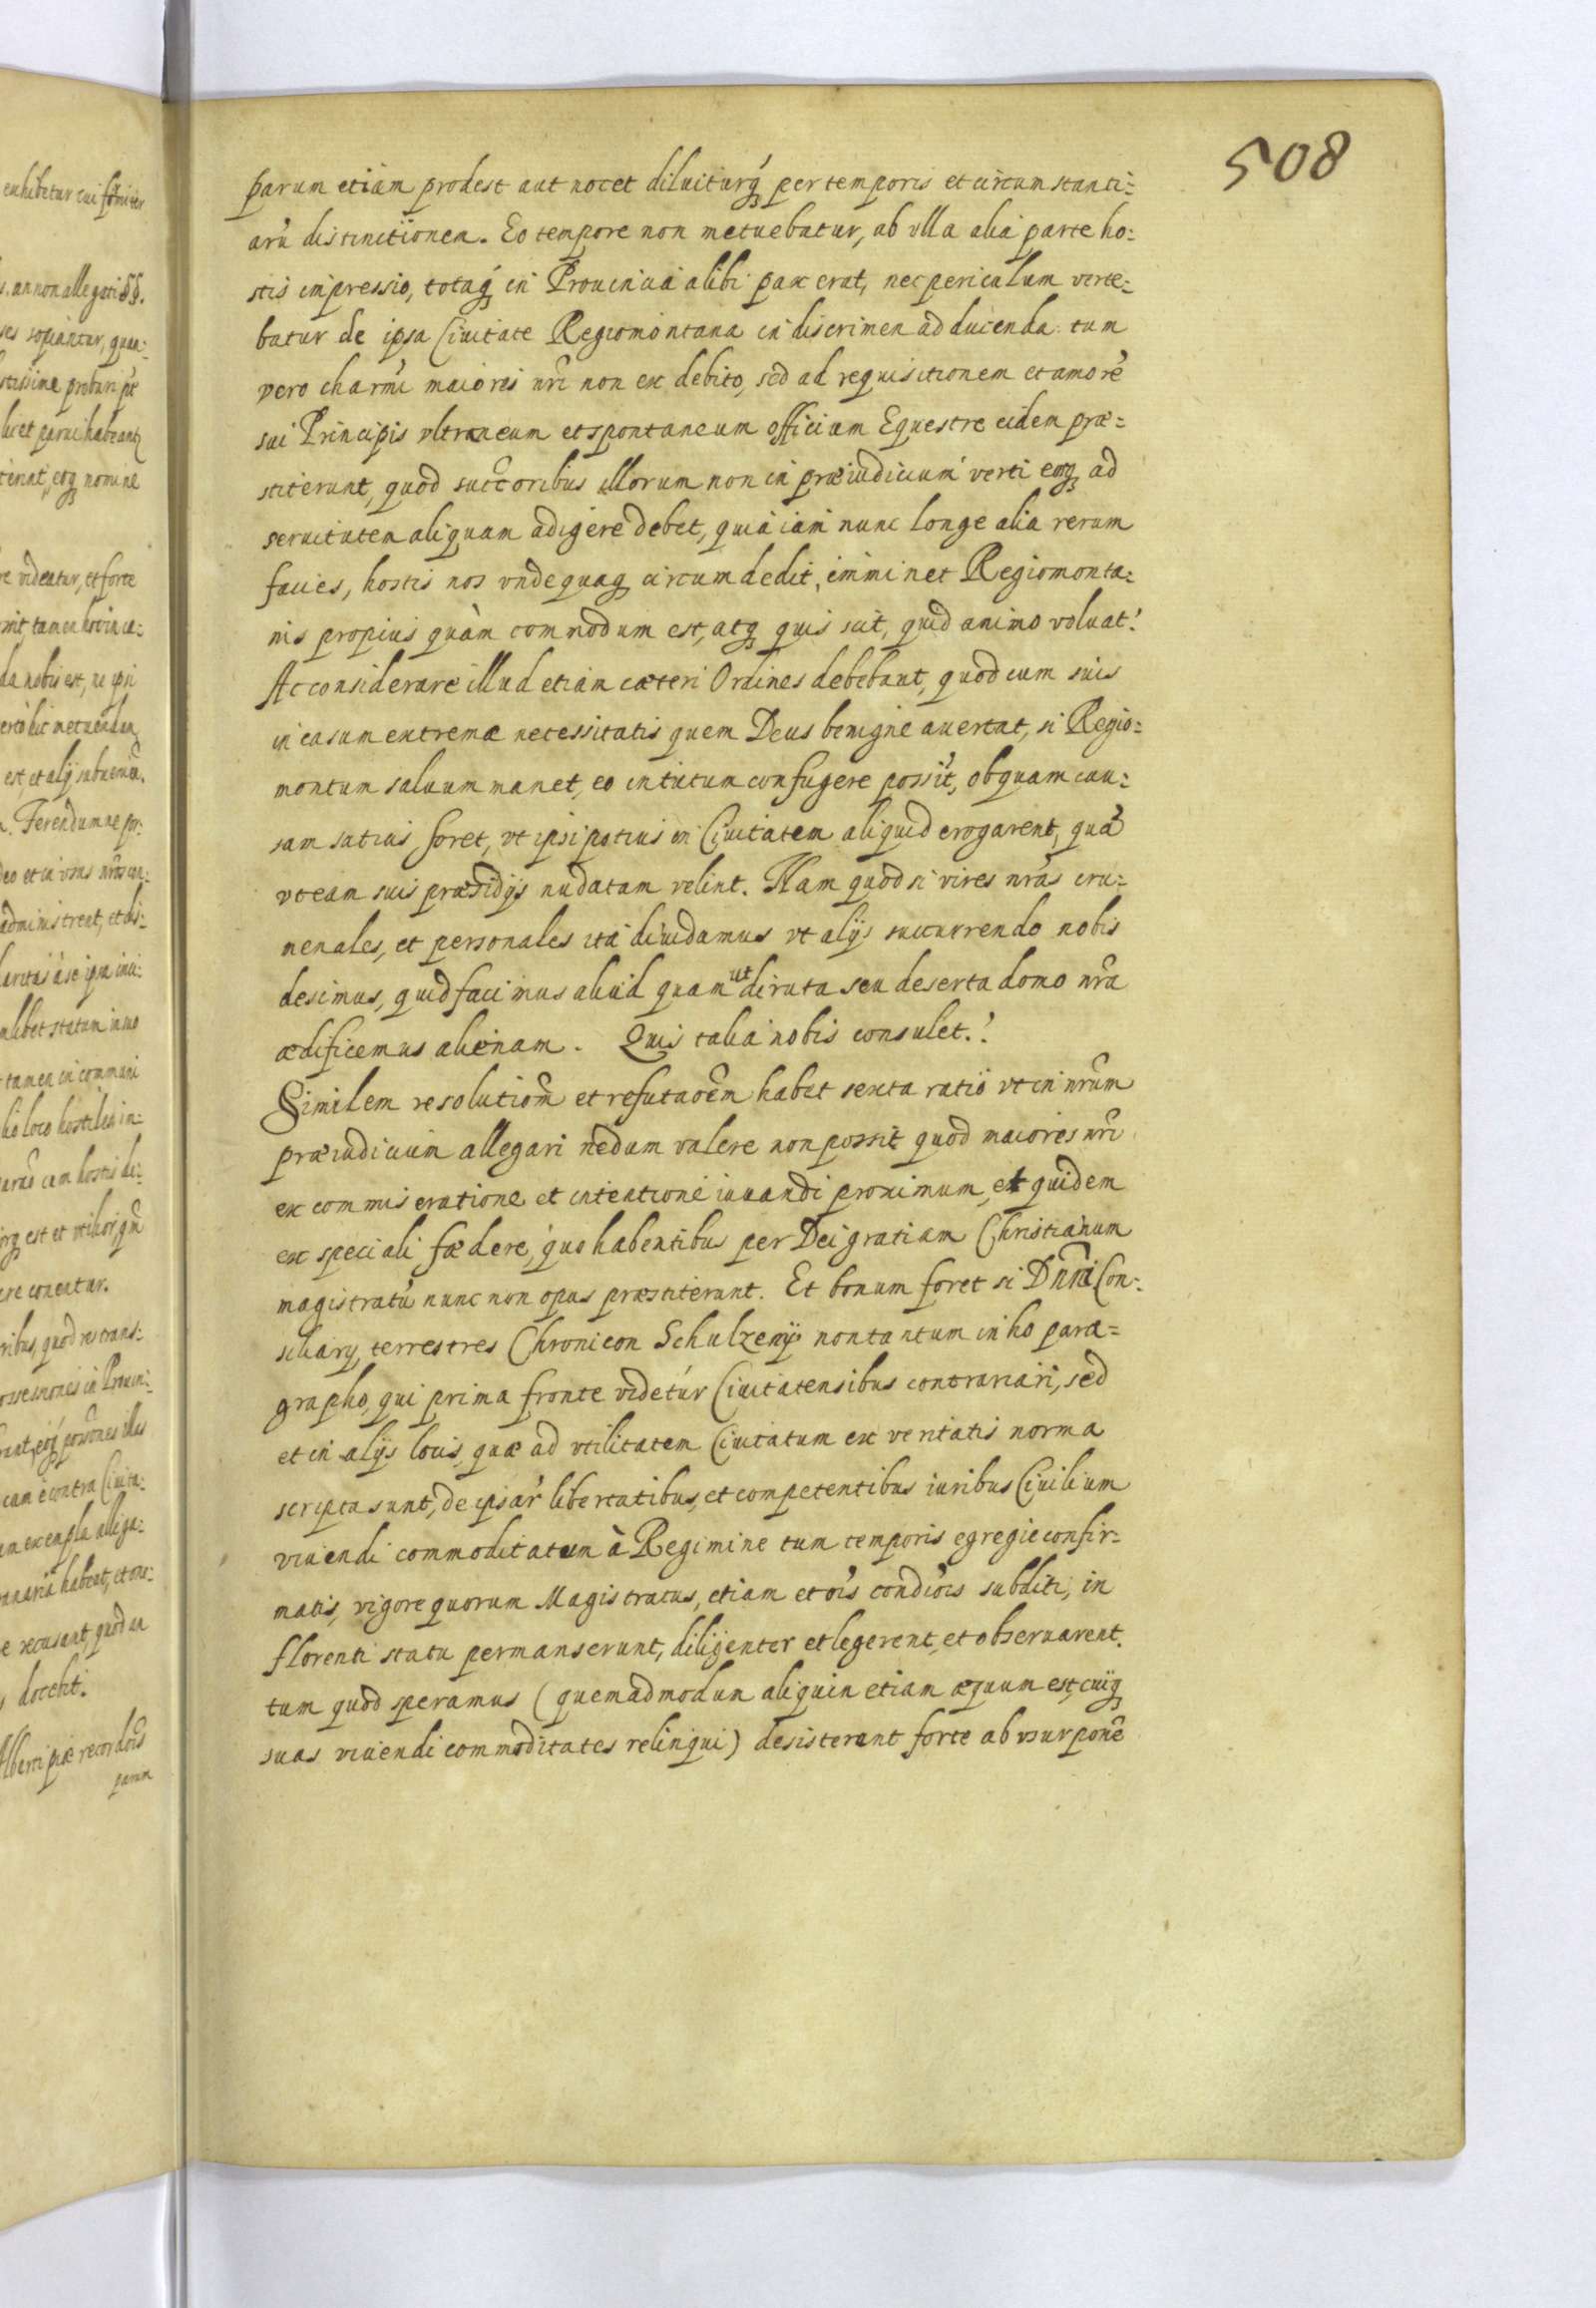 508
parum etiam prodest aut nocet diluiturq́ꝫ per temporis et circumstanti:
arũ distinctionem. Eo tempore non metuebatur, ab vlla alia parte ho:
stis impressio, totaq́ꝫ in Prouincia alibi pax erat, nec periculum verte:
batur de ipsa Ciuitate Regiomontana in discrimen adducenda: tum
vero charmi maiores nri non ex debito, sed ad requisitionem et amorẽ
sui Principis vltroneum et spontaneum officium Equestre eidem præ=
stiterunt, quod succoribus illorum non in præiudicium verti eosq́ꝫ ad
seruitutem aliquam adigere debet, quia iam nunc longe alia rerum
facies, hostis nos vndequaqꝫ circumdedit, imminet Regiomonta:
nis propius quàm commodum est, atqꝫ quis scit, quid animo voluat?
Ac considerare illud etiam cæteri Ordines debebant, quod cum suis
in casum extremæ necessitatis quem Deus benigne auertat, si Regio:
montum saluum manet, eo in tutum confugere possit, ob quam cau:
sam satius foret, vt ipsi potius in Ciuitatem aliquid erogarent, quã
vt eam suis præsidijs nudatam velint. Nam quod si vires nras cru:
menales, et personales ita diuidamus vt alijs succurrendo nobis
desimus, quid facimus aliud quam ut diruta seu deserta domo nra
ædificemus alienam. Quis talia nobis consulet?
Similem resolutiom et refutaoem habet sexta ratio vt in nrum
præiudicium allegari nedum valere non possit quod maiores nri
ex commiseratione et intentione iuuandi proximum, et quidem
ex speciali fædere, quo habentibus per Dei gratiam Christianum
magistratũ nunc non opus præstiterunt. Et bonum foret si Dnni Con:
siliarij terrestres Chronicon Schulzenij non tantum in ho para=
grapho, qui prima fronte videtur Ciuitatensibus contrariari, sed
et in alijs locis, quæ ad vtilitatem Ciuitatum ex veritatis norma
scripta sunt, de ipsar̃ libertatibus, et competentibus iuribus Ciuilium
viuendi commoditatum à Regimine tum temporis egregie confir=
matis, vigore quorum Magistratus, etiam et ois condiois subditi, in
florenti statu permanserunt, diligenter et legerent, et obseruarent.
tum quod speramus (quemadmodum alioquin etiam æquum est, cuiqꝫ
suas viuendi commoditates relinqui) desisterent forte ab vsurpone